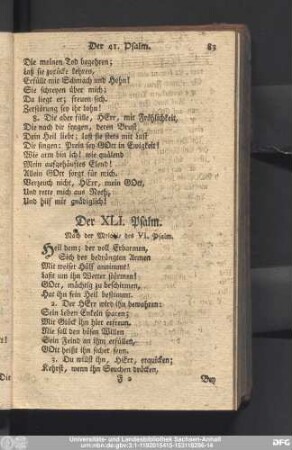 Der 41. Psalm. 83
Die meinen Tod begehren;
Laß sie zurücke kehren,
Erfüllt mit Schmach und Hohn!
Sie schreyen über mich:
Da liegt er; freuen sich.
Zerstörung sey ihr Lohn!
8. Die aber fülle, HErr, mit Fröhlichkeit,
Die nach dir fragen, deren Brust
Dein Heil liebt; laß sie stets mit Lust
Die singen: Preis sey GOtt in Ewigkeit!
Wie arm bin ich! wie quälend
Mein aufgehäuftes Elend!
Allein GOtt sorgt für mich.
Verzeuch nicht, HErr, mein GOtt,
Und rette mich aus Noth,
Und hilf mir gnädiglich!
Der XLI. Psalm.
Nach der Melodie des VI. Psalm.
Heil dem; der voll Erbarmen,
Sich des bedrängten Armen
Mit weiser Hülf annimmt!
Laßt um ihn Wetter stürmen!
GOtt, mächtig zu beschirmen,
Hat ihm sein Heil bestimmt.
2. Der HErr wird ihn bewahren;
Sein Leben Enkeln sparen;
Mit Glück ihn hier erfreun.
Nie soll den bösen Willen
Sein Feind an ihm erfüllen,
GOtt heißt ihn sicher seyn.
3. Du wirst ihn, HErr, erquicken;
Kehrst, wenn ihn Seuchen drücken,
F 2 Bey
Die
Universitäts- und Landesbibliothek Sachsen-Anhalt
urn:nbn:de:gbv:3:1-1192015415-153118286-14